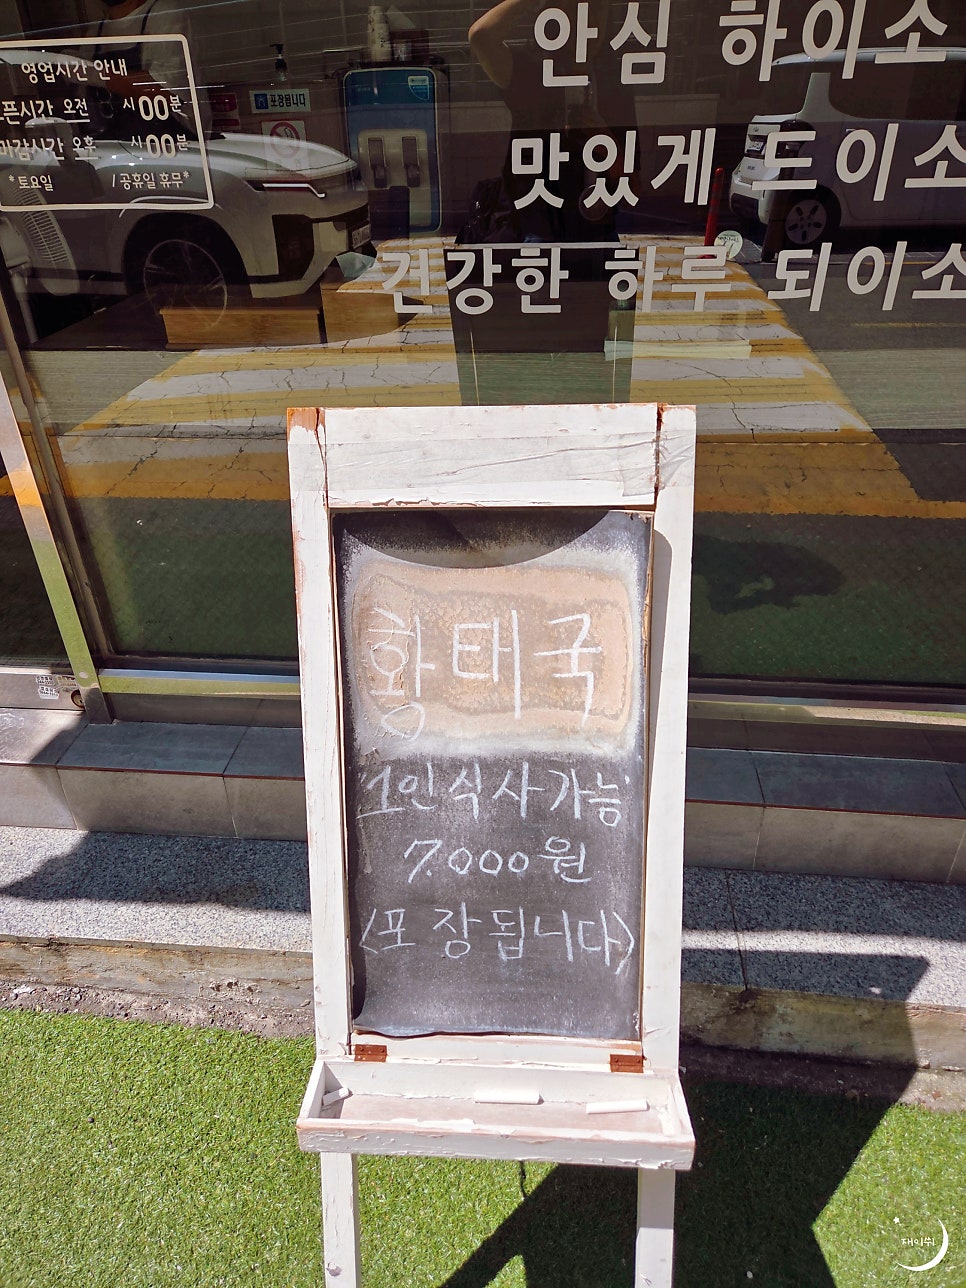 안심 하이소
맛있게 드이소
건강한 하루 되이소
영업시간 안내
픈시간 오전 시 00분
마감시간 오후 시 00분
*토요일 / 공휴일 휴무*
포장됩니다
황태국
"1인 식사가능"
7.000원
<포장됩니다>
재이뷔